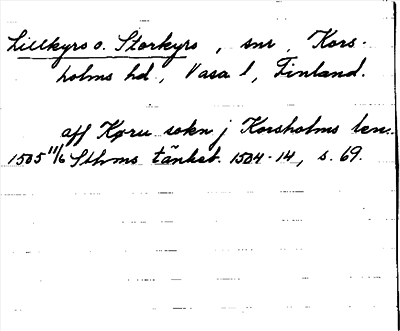 Lillkyro o. Storkyro, snr, Kors-
holms hd., Vasa l, Finland.
aff Køru sokn j Korsholms len.
1505 11/6 Sthms tänkeb. 1504-14, s. 69.